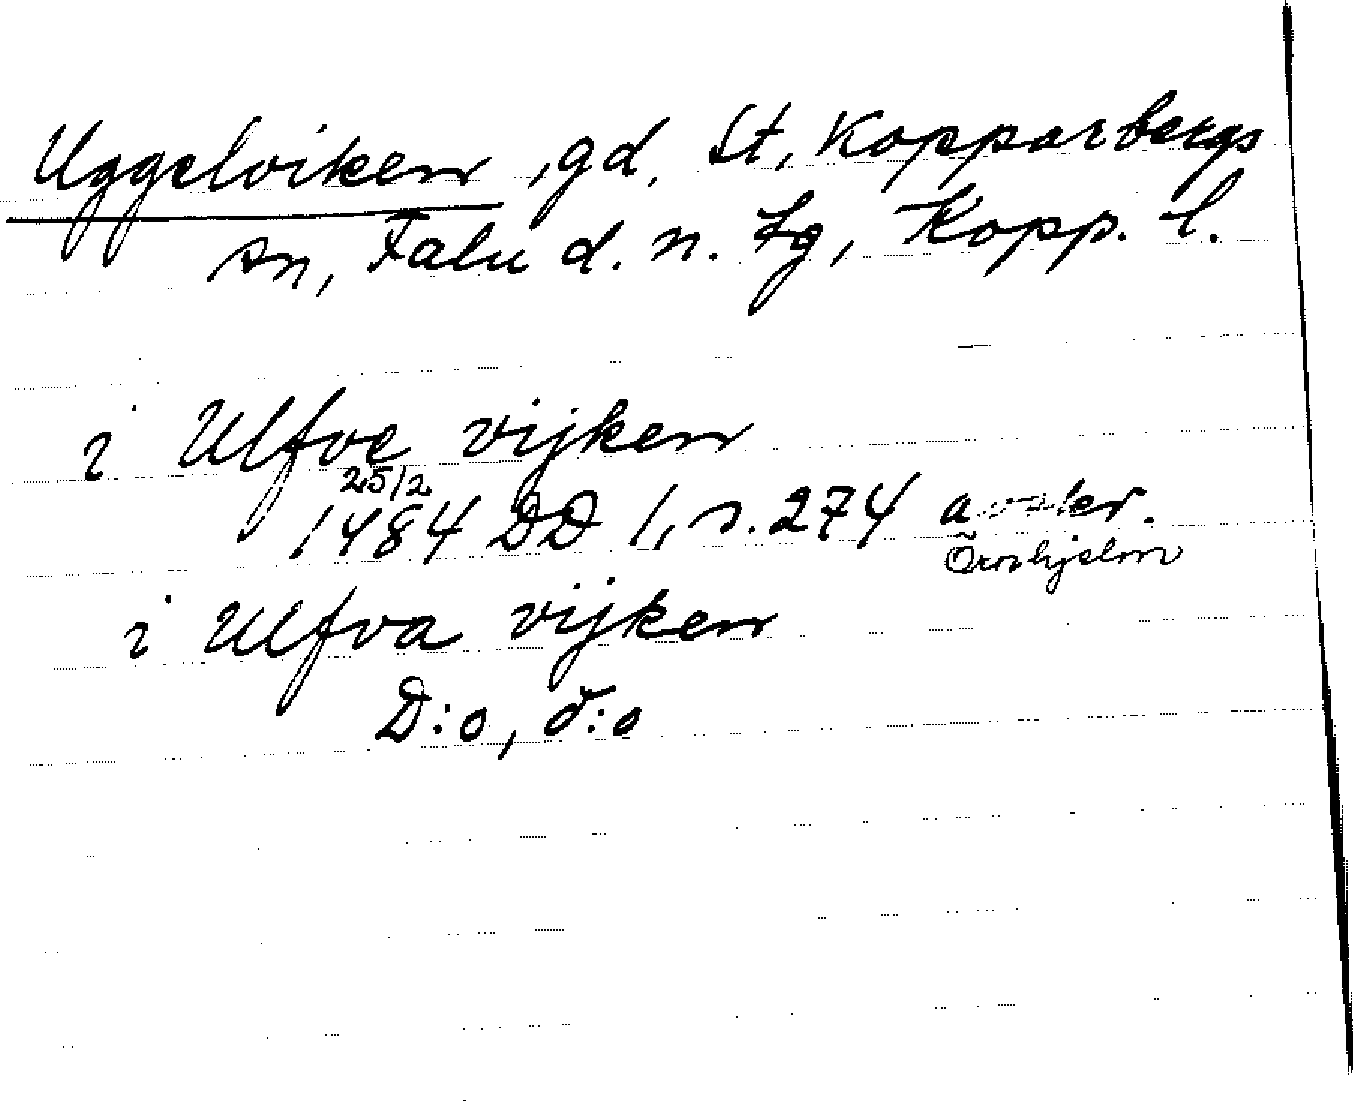 Uggelviken, gd, St, Kopparbergs
sn, Falu d. n. fg, Kopp. l.
i Ulfve vijken
25/2
1484 DD 1, s. 274 avskr.
Örnhjelm
i Ulfva vijken
D:o, d:o